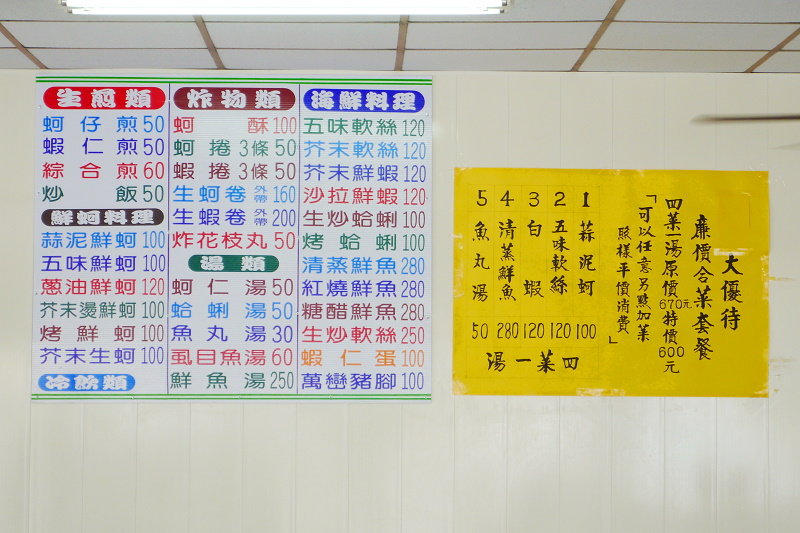 生煎類
蚵仔煎50
蝦仁煎50
綜合煎60
炒飯50
鮮蚵料理
蒜泥鮮蚵100
五味鮮蚵100
蔥油鮮蚵120
芥末燙鮮蚵100
烤鮮蚵100
芥末生蚵100
冷飲類
炸物類
蚵酥100
蚵捲3條50
蝦捲3條50
生蚵卷外帶160
生蝦卷外帶200
炸花枝丸50
湯類
蚵仁湯50
蛤蜊湯50
魚丸湯30
虱目魚湯60
鮮魚湯250
海鮮料理
五味軟絲120
芥末軟絲120
芥末鮮蝦120
沙拉鮮蝦120
生炒蛤蜊100
烤蛤蜊100
清蒸鮮魚280
紅燒鮮魚280
糖醋鮮魚280
生炒軟絲250
蝦仁蛋100
萬巒豬腳100
大優待
廉價合菜套餐
四菜一湯原價670元特價600元
「可以任意另點加菜
照樣平價消費」
1蒜泥蚵100
2五味軟絲120
3白蝦120
4清蒸鮮魚280
5魚丸湯50
四菜一湯